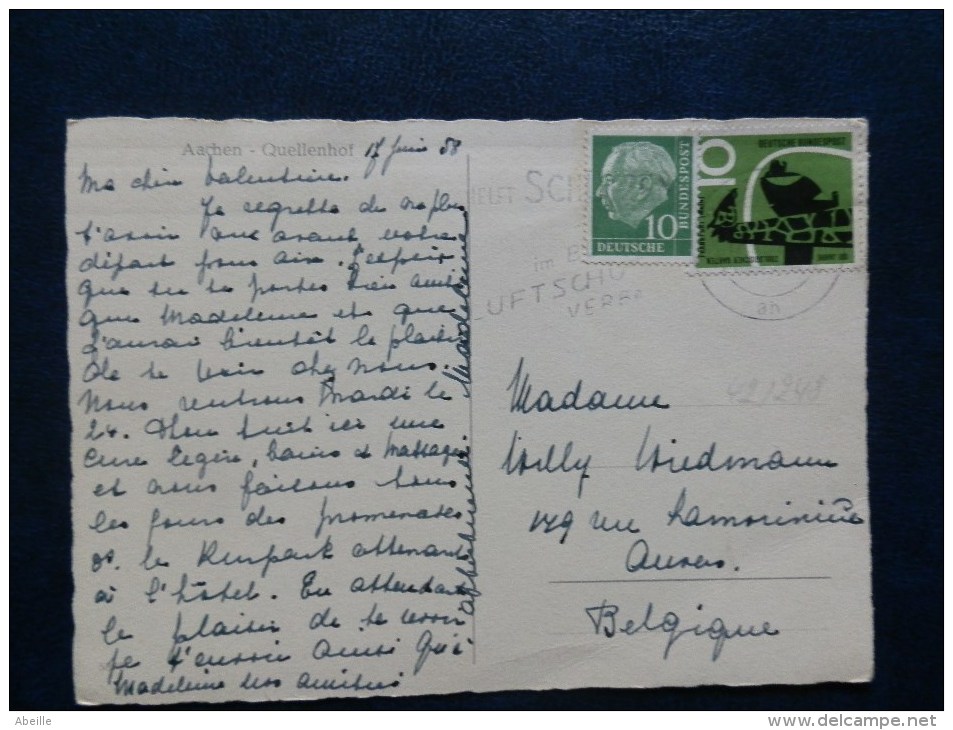 Aachen - Quellenhof 17 Juin 58
Ma chère Valentine.
Je regrette de n'a plus
t'avoir vue avant votre
départ pour Aix. J'espère
que tu te portes bien ainsi
que Madeleine et que
j'aurai bientôt le plaisir
de te voir chez nous.
Nous rentrons Mardi le
24. Mon suit ici une
cure légère, bains et Massages
et nous faisons tous
les jours des promenades
ds. le Kurpark attenant
à l'hôtel. En attendant
le plaisir de te revoir
je t'envoie ainsi qu'à
Madeleine nos amitiés
affectueuses.
HELFT SCH
im B
LUFTSCHU
VERBA
an
10
DEUTSCHE
BUNDESPOST
10
DEUTSCHE BUNDESPOST
100 JAHRE
ZOOLOGISCHER GARTEN
421248
Madame
Willy Wiedmann
179 rue Lamorinière
Anvers.
Belgique
Abeille
www.delcampe.net